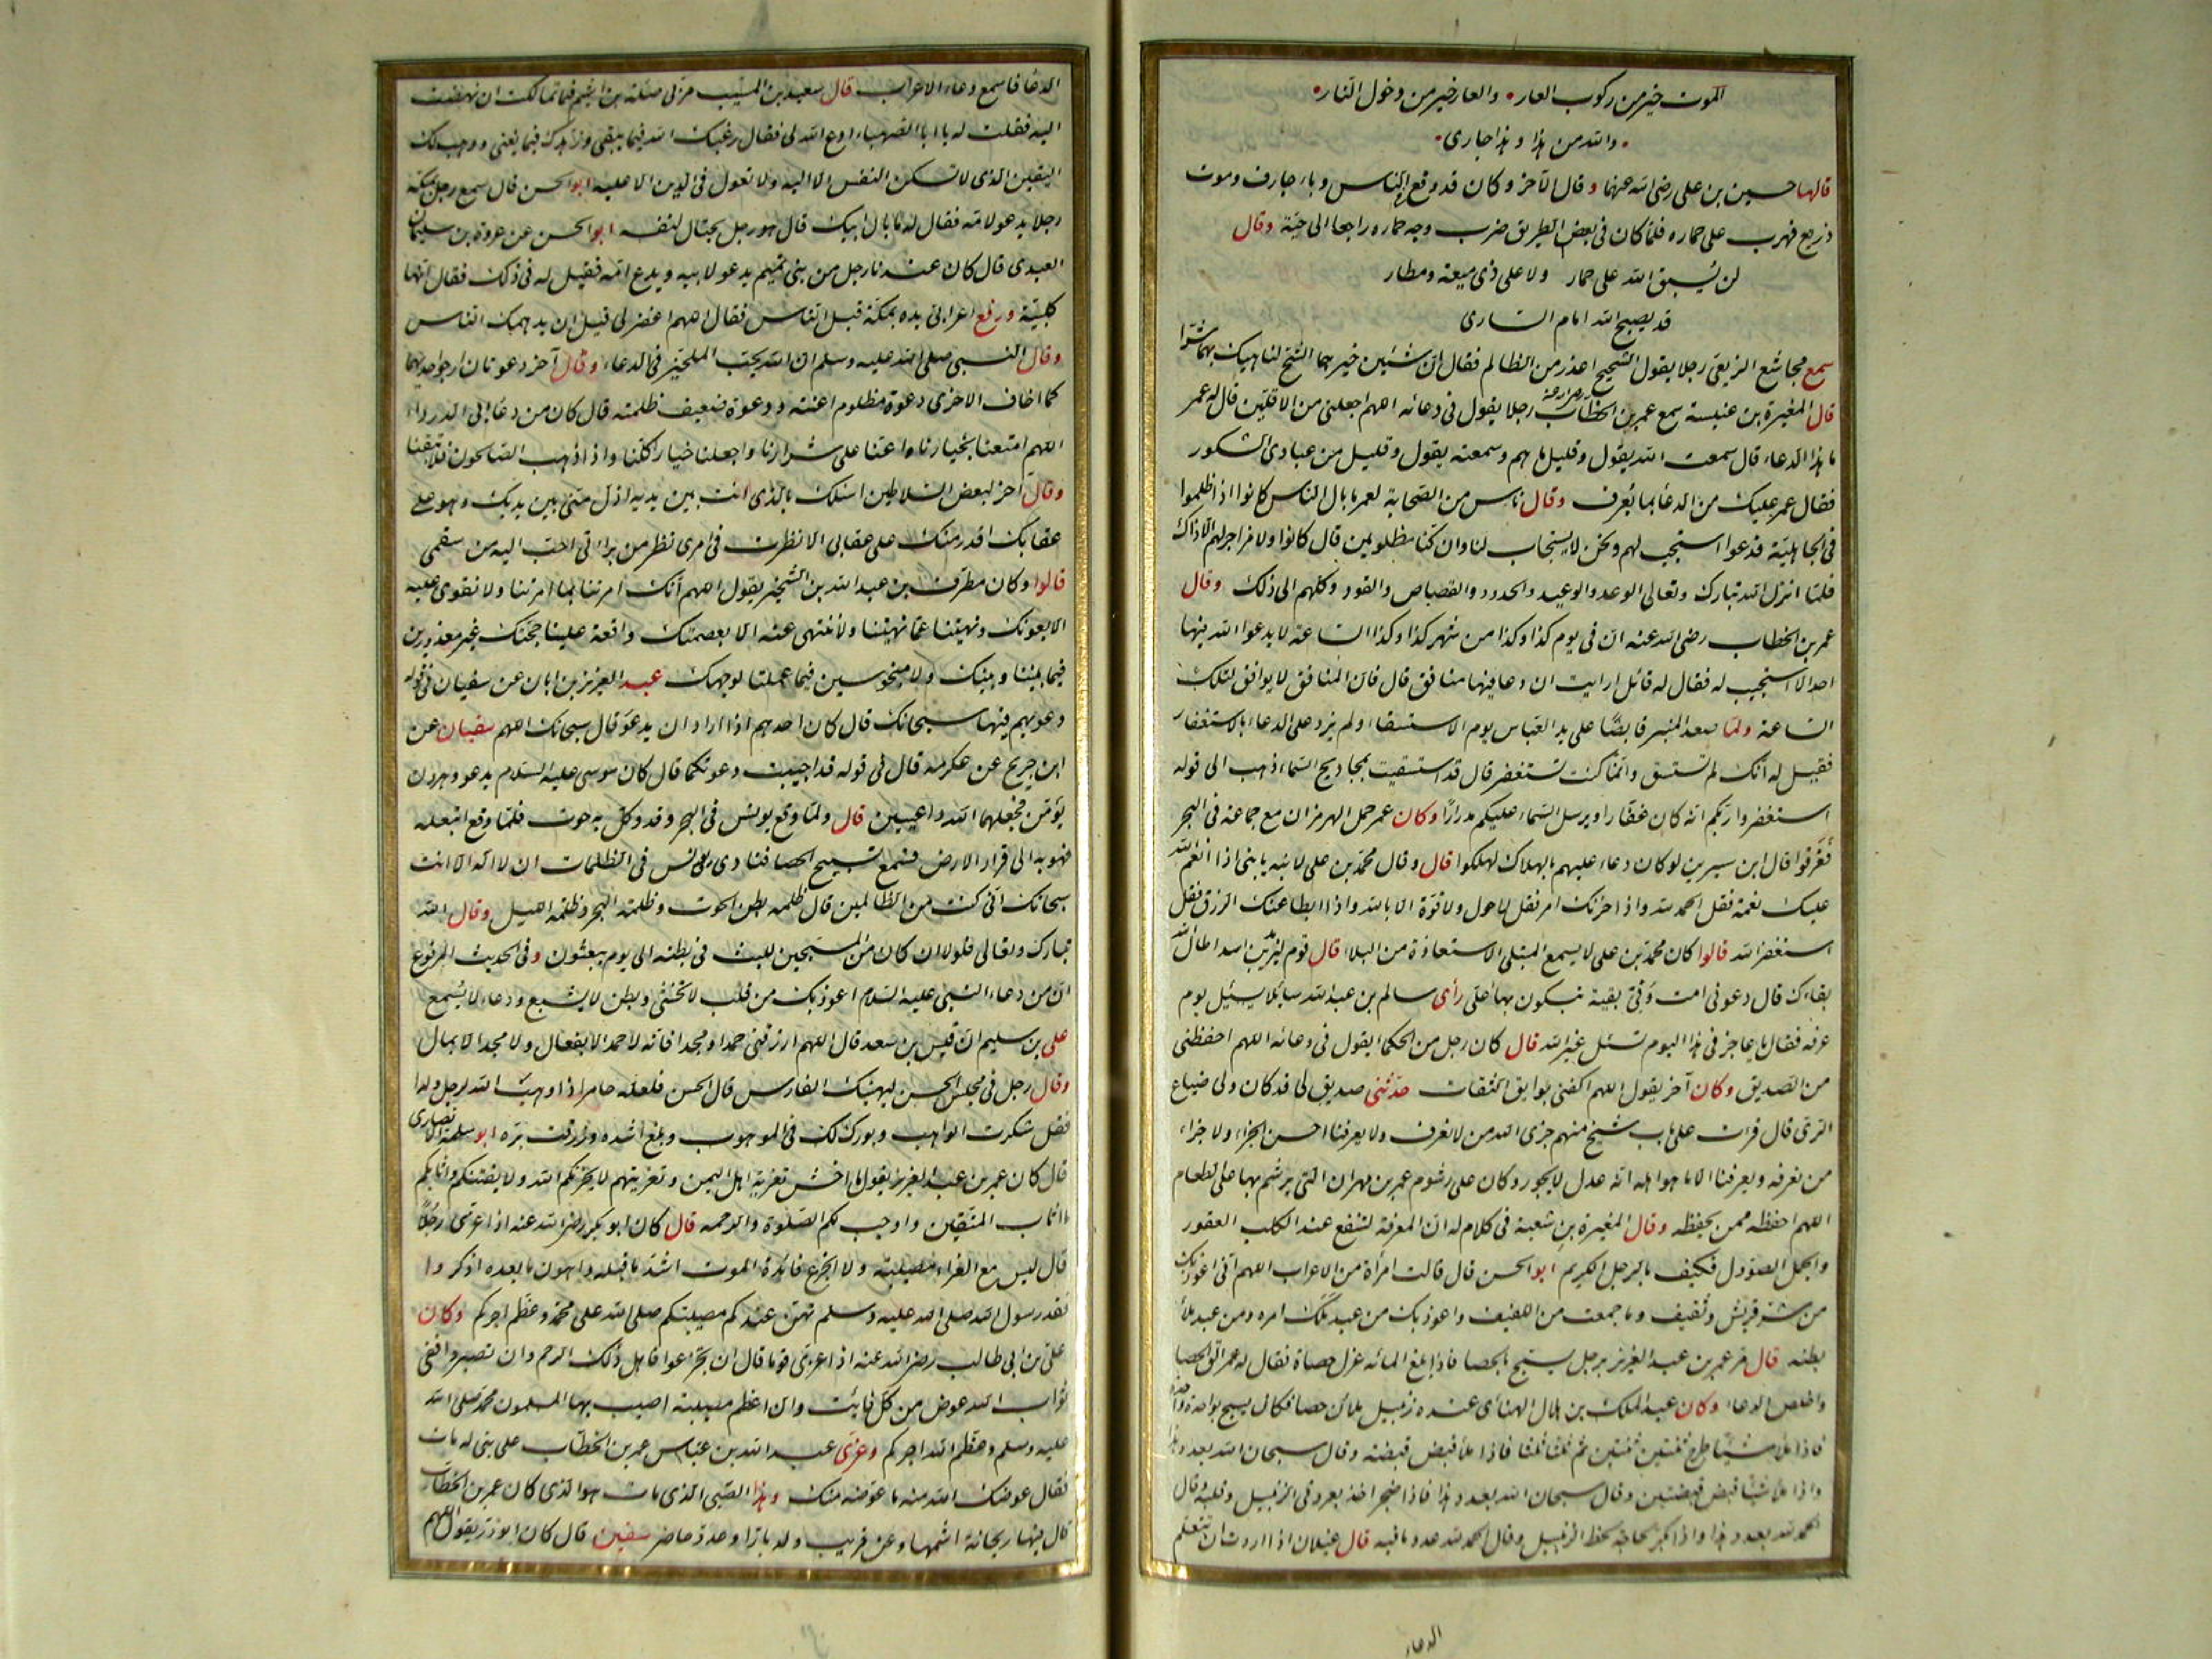 الموت خير من ركوب العار • والعار خير من دخول النار •
• والله من هذا وهذا جارى •
قالها حسين بن على رضى الله عنهما وقال الآخر وكان قد وقع بالناس وباء جارف وموت
ذريع فهرب على حماره فلما كان فى بعض الطريق ضرب وجه حماره راجعا الى حيّه وقال
لن يسبق الله على حمار ولا على ذى ميعة ومطار
قد يصبح الله امام السارى
سمع مجاشع الربعى رجلا يقول الشحيح اعذر من الظالم فقال انّ شيئين خيرهما الشح لناهيك بهما شرّا
قال المغيرة بن عنبسة سمع عمر بن الخطاب رجلا يقول فى دعائه اللهم اجعلنى من الاقلين قال له عمر
ما هذا الدعاء قال سمعت الله يقول وقليل ما هم وسمعته يقول وقليل من عبادى الشكور
فقال عمر عليك من الدعا بما يعرف وقال ناس من الصحابة لعمر ما بال الناس كانوا اذا ظلموا
فى الجاهلية فدعوا استجيب لهم ونحن لا يستجاب لنا وان كنا مظلومين قال كانوا ولا مزاجر لهم الا ذاك
فلما انزل الله تبارك وتعالى الوعد والوعيد والحدود والقصاص والقود وكلهم الى ذلك وقال
عمر بن الخطاب رضى الله عنه انّ فى يوم كذا وكذا من شهر كذا وكذا الساعة لا يدعوا الله فيها
احد الا استجيب له فقال له قائل ارايت ان دعا فيها منافق قال فان المنافق لا يوافق لتلك
الساعة ولما صعد المنبر قابضًا على يد العباس يوم الاستسقاء ولم يزد على الدعاء بالاستغفار
فقيل له انك لم تستسق وانما كنت تستغفر قال قد استسقيت بمجاديح السماء ذهب الى قوله
استغفروا ربكم انه كان غفّارا ويرسل السماء عليكم مدرارًا وكان عمر حمل الهرمزان مع جماعة فى البحر
فغرقوا قال ابن سيرين لو كان دعاء عليهم بالهلاك لهلكوا قال وقال محمد بن على لابنه يا بنى اذا انعم الله
عليك نعمة فقل الحمد لله واذا حزنك امر فقل لا حول ولا قوة الا بالله واذا ابطا عنك الرزق فقل
استغفر الله قالوا كان محمد بن على لا يسمع المبتلى الاستعاذة من البلاء قال قوم ليزيد بن اسد اطال الله
بقاءك قال دعونى امت وفىّ بقية تبكون بها على رأى سالم بن عبد الله سائلا يسئل يوم
عرفة فقال يا عاجز فى هذا اليوم تسئل غير الله قال كان رجل من الحكماء يقول فى دعائه اللهم احفظنى
من الصديق وكان آخر يقول اللهم اكفنى بوايق الثقات حدثنى صديق لى قد كان ولى ضياع
الرى قال قرات على باب شيخ منهم جزى الله من لا نعرف ولا يعرفنا احسن الجزاء ولا جزاء
من نعرفه ويعرفنا الا ما هو اهله انه عدل لا يجور وكان على رشوم عمر بن مهران التى يرشم بها على الطعام
اللهم احفظه ممن يحفظه وقال المغيرة بن شعبة فى كلام له انّ المعرفة لتنفع عند الكلب العقور
والجمل الصؤول فكيف بالرجل الكريم ابو الحسن قال قالت امرأة من الاعراب اللهم انى اعوذ بك
من شر قريش وثقيف وما جمعت من اللفيف واعوذ بك من عبد ملك امره ومن عبد ملأ
بطنه قال مر عمر بن عبد العزيز برجل يسبح بالحصا فاذا بلغ المائه عزل حصاة فقال له عمر الق الحصا
واخلص الدعاء وكان عبد الملك بن هلال الهنائى عنده زنبيل ملآن حصا فكان يسبح بواحدة
فاذا ملّ شيئًا طرح ثنتين ثنتين ثم ثلثا ثلثا فاذا ملّ قبض قبضة وقال سبحان الله بعدد هذا
واذا ملّ شيئا قبض قبضتين وقال سبحان الله بعدد هذا فاذا ضجر اخذ بعروتى الزنبيل وقلبه وقال
الحمد لله بعدد هذا واذا بكر لحاجة لحظ الزنبيل وقال الحمد لله عدد ما فيه قال غيلان اذا اردت ان تتعلم
الدعاء
الدعا فاسمع دعاء الاعراب قال سعيد بن المسيب مرّ بى صلة بن اشيم فما تمالكت ان نهضت
اليه فقلت له يا ابا الصهباء ادع الله لى فقال رغبك الله فيما يبقى وزهدك فيما يفنى ووهب لك
اليقين الذى لا تسكن النفس الا اليه ولا تعول فى الدين الا عليه ابو الحسن قال سمع رجل بمكة
رجلا يدعو لامه فقال له ما بال ابيك قال هو رجل يحتال لنفسه ابو الحسن عن عروة بن سليمان
العبدى قال كان عندنا رجل من بنى تميم يدعو لابيه ويدع امه فقيل له فى ذلك فقال انها
كلبية ورفع اعرابى يده بمكة قبل الناس فقال اللهم اغفر لى قبل ان يدهمك الناس
وقال النبى صلى الله عليه وسلم ان الله يحب الملحين فى الدعاء وقال آخر دعوتان ارجو احديهما
كما اخاف الاخرى دعوة مظلوم اعنته ودعوة ضعيف ظلمته قال كان من دعا ابى الدرداء
اللهم امتعنا بخيارنا واعنا على شرارنا واجعلنا خيارا كلنا واذا ذهب الصالحون فلا تبقنا
وقال آخر لبعض السلاطين اسئلك بالذى انت بين يديه اذل منى بين يديك وهو على
عقابك اقدر منك على عقابى الا نظرت فى امرى نظر من براءتى احب اليه من سقمى
قالوا وكان مطرف بن عبد الله بن الشخير يقول اللهم انك امرتنا بما امرتنا ولا نقوى عليه
الا بعونك ونهيتنا عما نهيتنا ولا ننتهى عنه الا بعصمتك واقعة علينا حجتك غير معذورين
فيما بيننا وبينك ولا مبخوسين فيما عملنا لوجهك عبد العزيز بن ابان عن سفيان فى قوله
دعويهم فيها سبحانك قال كان احدهم اذا اراد ان يدعو قال سبحانك اللهم سفيان عن
ابن جريج عن عكرمه قال فى قوله قد اجيبت دعوتكما قال كان موسى عليه السلام يدعو وهرون
يؤمن فجعلهما الله داعيين قال ولما وقع يونس فى البحر وقد وكل به حوت فلما وقع ابتعله
فهو به الى قرار الارض فسمع تسبيح الحصا فنادى يونس فى الظلمات ان لا اله الا انت
سبحانك انى كنت من الظالمين قال ظلمة بطن الحوت وظلمة البحر وظلمة الليل وقال الله
تبارك وتعالى فلولا ان كان من المسبحين للبث فى بطنه الى يوم يبعثون وفى الحديث المرفوع
ان من دعاء النبى عليه السلام اعوذ بك من قلب لا يخشى وبطن لا يشبع ودعاء لا يسمع
على بن سليم ان قيس بن سعد قال اللهم ارزقنى حمدا ومجدا فانه لا حمد الا بفعال ولا مجد الا بمال
وقال رجل فى مجلس الحسن ليهنئك الفارس قال الحسن فلعله حامر اذا وهب الله لرجل ولدا
فقل شكرت الواهب وبورك لك فى الموهوب وبلغ اشده ورزقت بره ابو سلمة الانصارى
قال كان عمر بن عبد العزيز يقول ما احسن تعزية اهل اليمن وتعزيتهم لا يحزنكم الله ولا يفتنكم واثابكم
ما اثاب المتقين واوجب لكم الصلوة والرحمه قال كان ابو بكر رضى الله عنه اذا عزى رجلاً
قال ليس مع العزاء مصيبة ولا مع الجزع فائدة الموت اشد ما قبله واهون ما بعده اذكروا
فقد رسول الله صلى الله عليه وسلم تهن عندكم مصيبتكم صلى الله على محمد وعظم اجركم وكان
على بن ابى طالب رضى الله عنه اذا عزى قوما قال ان تجزعوا فاهل ذلك الرحم وان تصبروا ففى
ثواب الله عوض من كل فائت وان اعظم مصيبة اصيب بها المسلمون محمد صلى الله
عليه وسلم وعظم الله اجركم وعزّى عبد الله بن عباس عمر بن الخطاب على بنى له مات
فقال عوضك الله منه ما عوضه منك وهذا الصبى الذى مات هو الذى كان عمر بن الخطاب
قال فيها ريحانة اشمها وعن قريب ولد بارّ او عدو حاضر سفين قال كان ابو ذر يقول اللهم